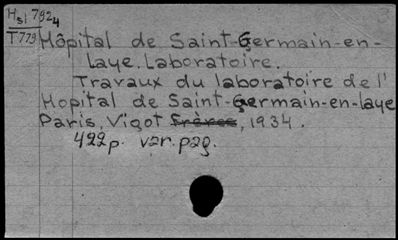 Hsl 7924
T779
Hôpital de Saint-Germain-en-
Laye. Laboratoire.
Travaux du laboratoire de l'
Hopital de Saint-Germain-en-Laye
Paris, Vigot Frères, 1934.
422p. var. pag.